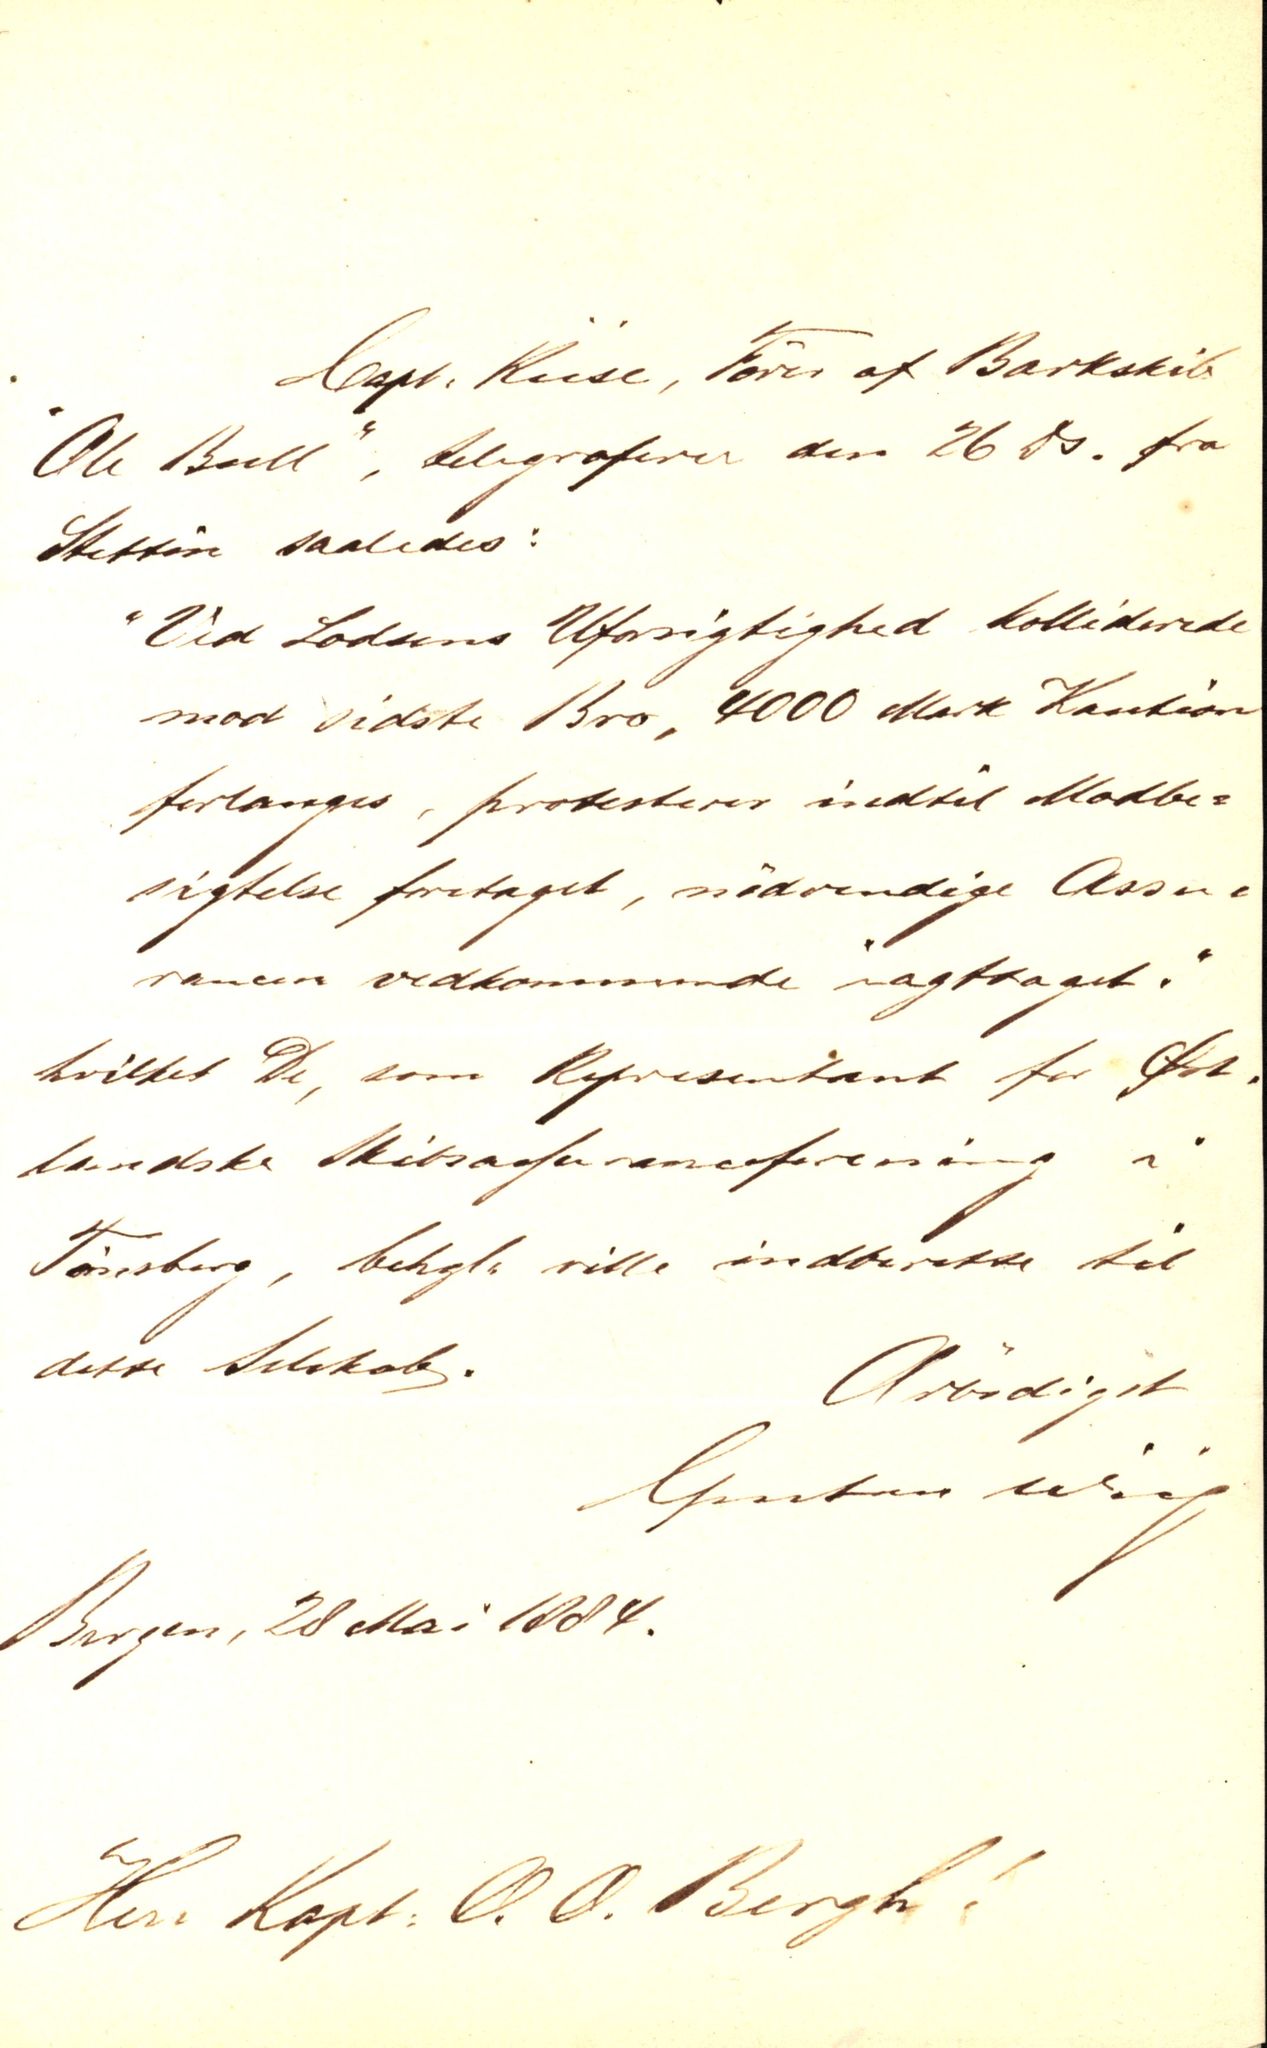 Capt. Kiise, Fører af Barkskib
"Ole Bull", telegraferer den 26 ds. fra
Stettin saaledes:
"Ved Lodsens Uforsigtighed kolliderede
mod sidste Bro, 4000 Mark Kaution
forlanges, protesterer indtil Modbe=
sigtelse foretaget, nödvendige Assu=
rancen vedkommende iagttaget."
hvilket De, som Representant for Øst=
landske Skibsassuranceforening i
Tönsberg, behgl. ville indberette til
dette Selskab.
Ærbödigst
Bergen, 28 Mai 1884.
Herr Kapt. O. O. Bergh!